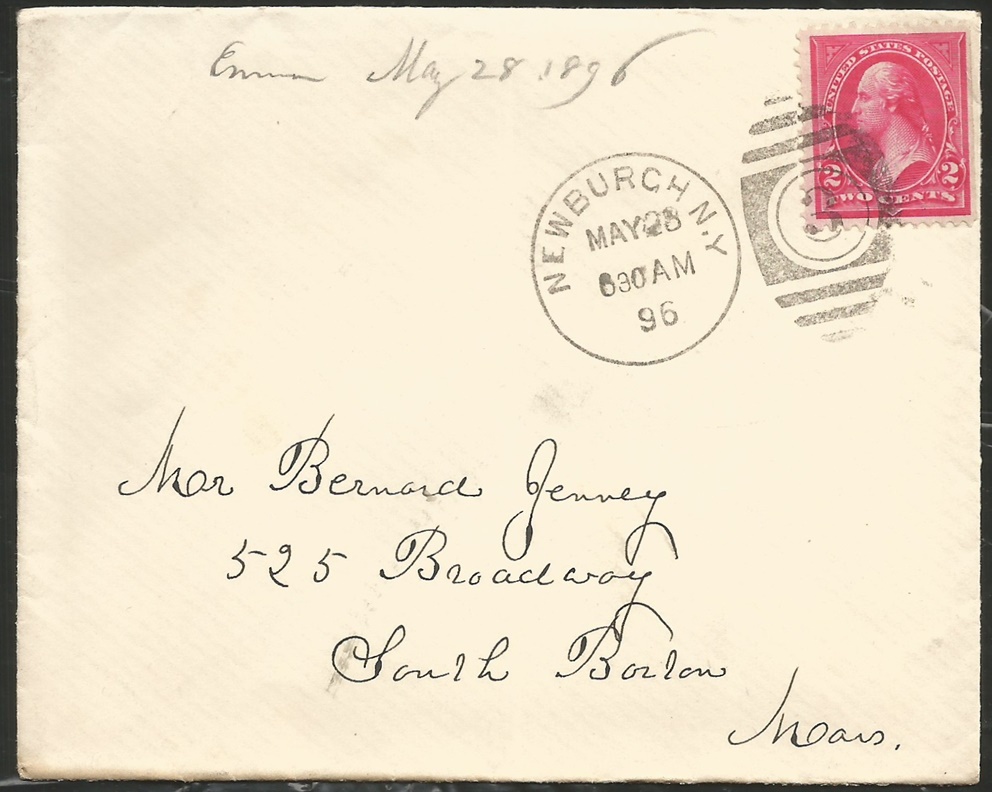 Emma May 28 1896
UNITED STATES POSTAGE
2 2
TWO CENTS
NEWBURGH N.Y
MAY 28
630 AM
96
3
Mr Bernard Jenney
525 Broadway
South Boston
Mass.